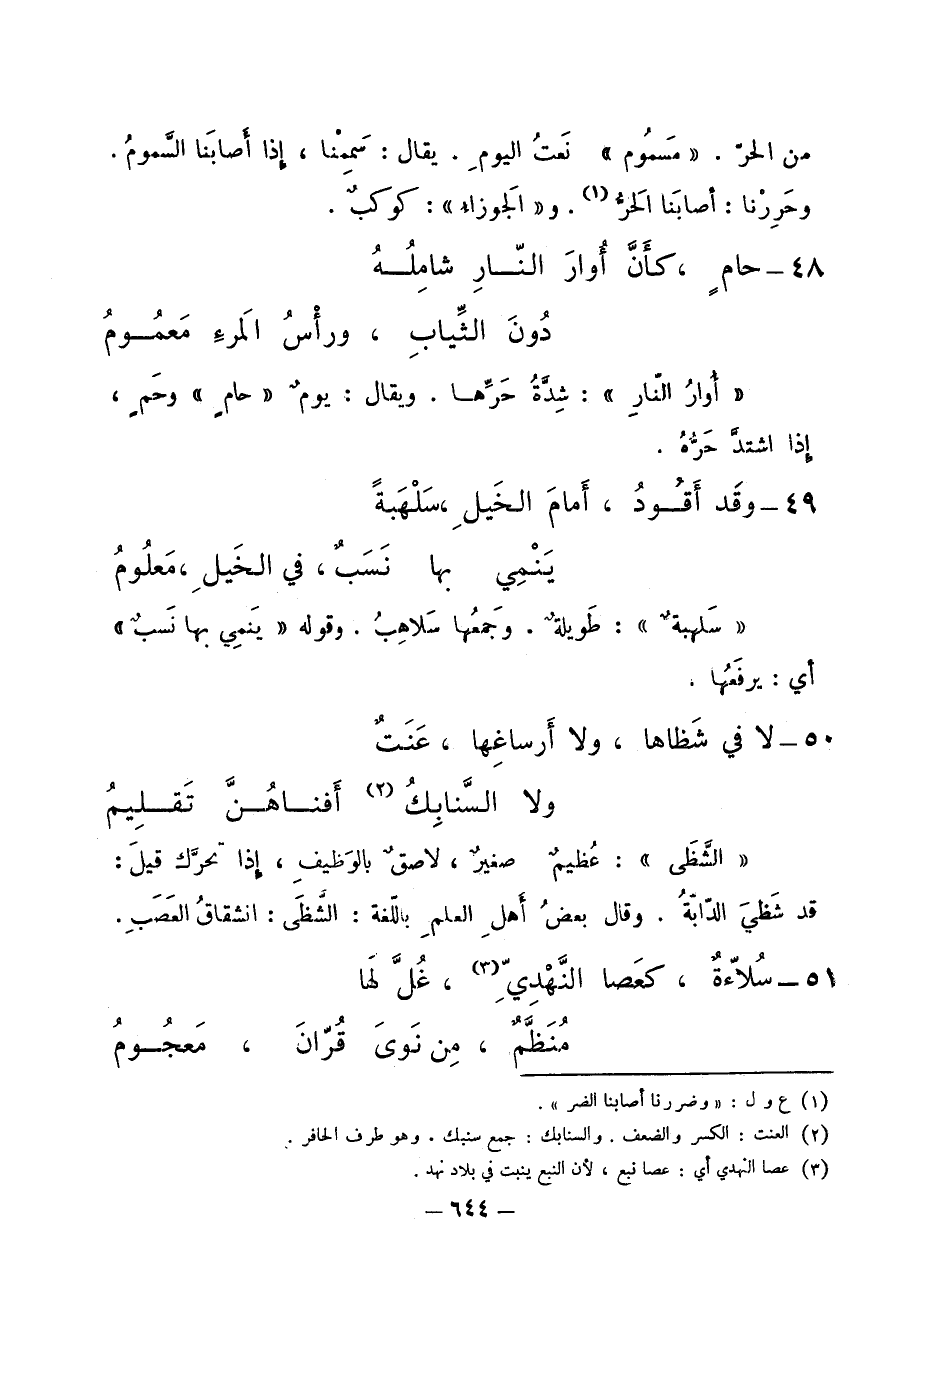 من الحرّ . « مَسمُوم » نَعتُ اليومِ . يقال : سَمِمْنا ، إذا أصابَنا السَّمومُ .
وحَرِرْنا : أصابَنا الحَرُّ (١) . و« الجَوزاء » : كوكبٌ .
٤٨ – حامٍ ، كأنَّ أُوارَ النّـارِ شامِلُـهُ
دُونَ الثِّيابِ ، ورأْسُ المَرءِ مَعمُـومُ
« أُوارُ النّارِ » : شِدَّةُ حَرِّهـا . ويقال : يومٌ « حامٍ » وحَمٍ ،
إذا اشتدَّ حَرُّهُ .
٤٩ – وقَد أَقُـودُ ، أَمامَ الخَيلِ ، سَلْهَبةً
يَنْمِي بها نَسَبٌ ، في الخَيلِ ، مَعلُومُ
« سَلهبةٌ » : طَويلةٌ . وجَمعُها سَلاهِبُ . وقوله « يَنمِي بها نَسبٌ »
أي : يرفَعُها .
٥٠ – لا في شَظاها ، ولا أَرساغِها ، عَنَتٌ
ولا السَّنابِكُ (٢) أَفنـاهُـنَّ تَقـلِيمُ
« الشَّظَى » : عُظيمٌ صغيرٌ ، لاصقٌ بالوَظيفِ ، إذا تحرَّك قيلَ :
قد شَظِيَ الدّابّةُ . وقال بعضُ أهلِ العلمِ باللّغة : الشَّظَى : انشقاقُ العَصَبِ .
٥١ – سُلاّءةٌ ، كعَصا النَّهْدِيِّ (٣) ، غُلَّ لَها
مُنَظَّمٌ ، مِن نَوىَ قُرّانَ ، مَعجُـومُ
(١) ع و ل : « وضررنا أصابنا الضر » .
(٢) العنت : الكسر والضعف . والسنابك : جمع سنبك . وهو طرف الحافر .
(٣) عصا النهدي أي : عصا نبع ، لأن النبع ينبت في بلاد نهد .
– ٦٤٤ –